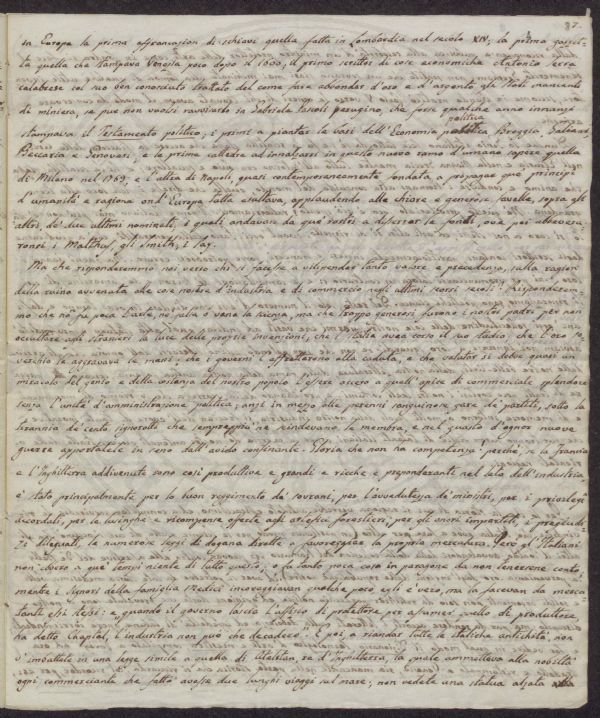 87.
in Europa la prima affrancazion di schiavi quella fatta in Lombardia nel secolo XIV; la prima gazzet-
ta quella che stampava Venezia poco dopo il 1600, il primo scrittor di cose economiche Antonio Serra
calabrese col suo ben conosciuto trattato del come fare abbondar d'oro e d'argento gli Stati mancanti
di miniera, se pur non vuolsi ravvisarlo in Gabriele perugino, che forse qualche anno innanzi
stampava il Testamento politico; i primi a piantar le basi dell'Economia politica Broggia, Galeani,
Beccaria e Genovesi, e le prime cattedre ad innalzarsi in questo nuovo ramo d'umano sapere quella
di Milano nel 1769, e l'altra di Napoli, quasi contemporaneamente fondata a propagar que' principi
d'umanità e ragione ond'Europa tutta esultava, applaudendo alle chiare e generose favelle, sopra gli
altri de' due ultimi nominati, i quali andavano da que' rostri a disserrar le fonti, ove poi abbevera-
ronsi i Malthus, gli Smith, i Say.
Ma che risponderemmo noi verso chi si facesse a vilipender tanto valore e precedenza, sulla ragion
della ruina avvenuta alle cose nostre d'industria, e di commercio negli ultimi scorsi secoli? Risponderem-
mo che no fu poca l'arte, no falsa o vana la scienza, ma che troppo generosi furono i nostri padri per non
occultare agli stranieri la luce delle proprie invenzioni, che l'Italia avea corso il suo stadio, che l'oro so-
verchio le aggravava le mani; che i governi n'affrettarono alla caduta, e che valutar si debbe quasi un
miracolo del genio e della costanza del nostro popolo l'essere asceso a quell'apice di commerciale splendore
senza l'unità d'amministrazione politica, anzi in mezzo alle perenni sanguinose gare de' partiti, sotto la
tirannia de' cento signorotti che sempreppiù ne scindevano le membra, e nel guasto d'ognor nuove
guerre apportatele in seno dall'avido confinante. Gloria che non ha competenza; perché, se la Francia
e l'Inghilterra addivenute sono così produttive e grandi e ricche e preponderanti nel lato dell'industria
è stato principalmente per lo buon reggimento de' sovrani, per l'avvedutezza de' ministri, per i privilegi
accordati, per le lusinghe e ricompense offerte agli artefici forestieri, per gli onori impartiti, i pregiudi-
zi dileguati, le numerose leggi di dogana dirette a favoreggiar la propria mercatura. Però gl'Italiani
non ebbero a que' tempi niente di tutto questo, o fu tanto poca cosa in paragone da non tenersene conto;
mentre i Signori della famiglia Medici incoraggiavan qualche poco egli è vero, ma la facevan da merca-
tanti essi stessi: e „quando il governo lascia l'ufficio di protettore per assumer quello di produttore,
ha detto Chaptal, l'industria non può che decadere. E poi, a riandar tutte le italiche antichità, non
s'imbatte in una legge simile a quella di Atelstan, re d'Inghilterra, la quale ammetteva alla nobiltà
ogni commerciante che fatto avesse due lunghi viaggi sul mare; non vedete una statua alzata